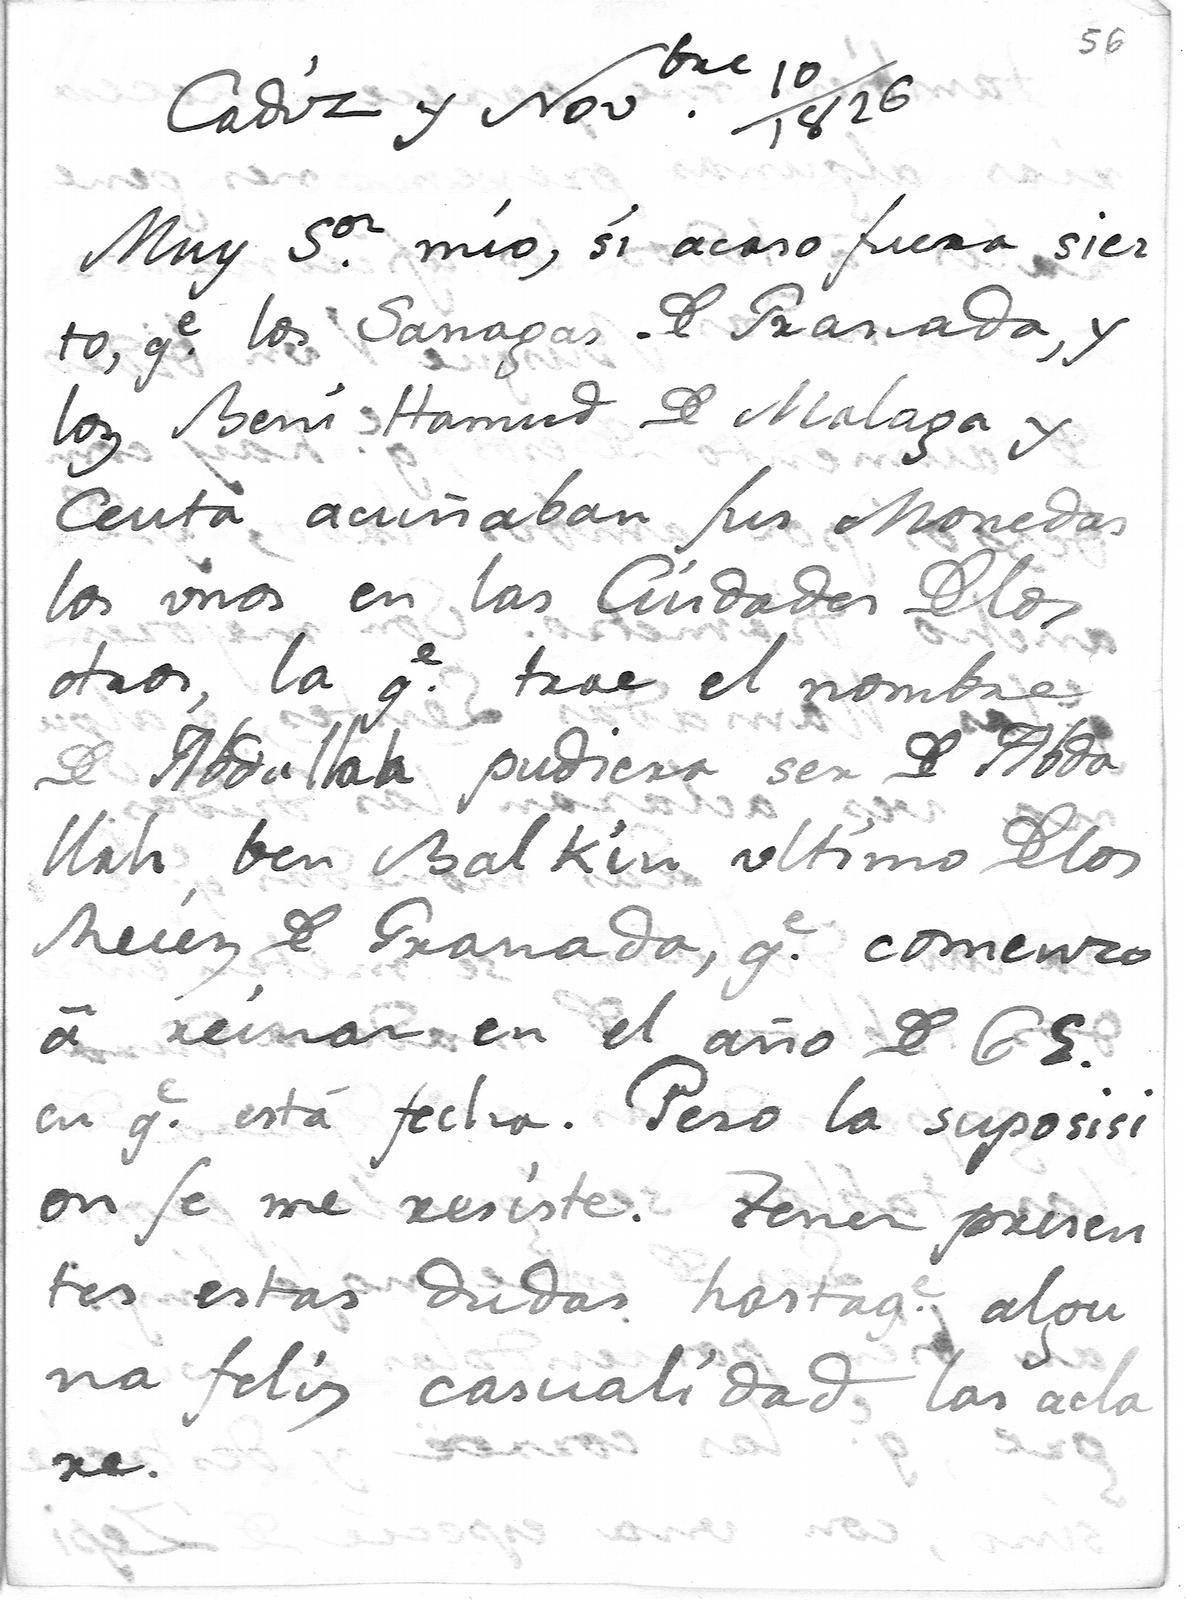 56
Cadiz y Nov.bre 10/1826
Muy S.or mío, si acaso fuera sier
to, q.e los Sanagas de Granada, y
los Beni Hamud de Malaga y
Ceuta acuñaban sus Monedas
los unos en las Ciudades de los
otros, la q.e trae el nombre
de Abdullah pudiera ser de Abda
llah ben Balkin ultimo de los
Reies de Granada, q.e comenzo
á reinar en el año de 65.
en q.e está fecha. Pero la suposisi
on se me resiste. Tener presen
tes estas dudas hastaq.e algu
na feliz casualidad las acla
re.